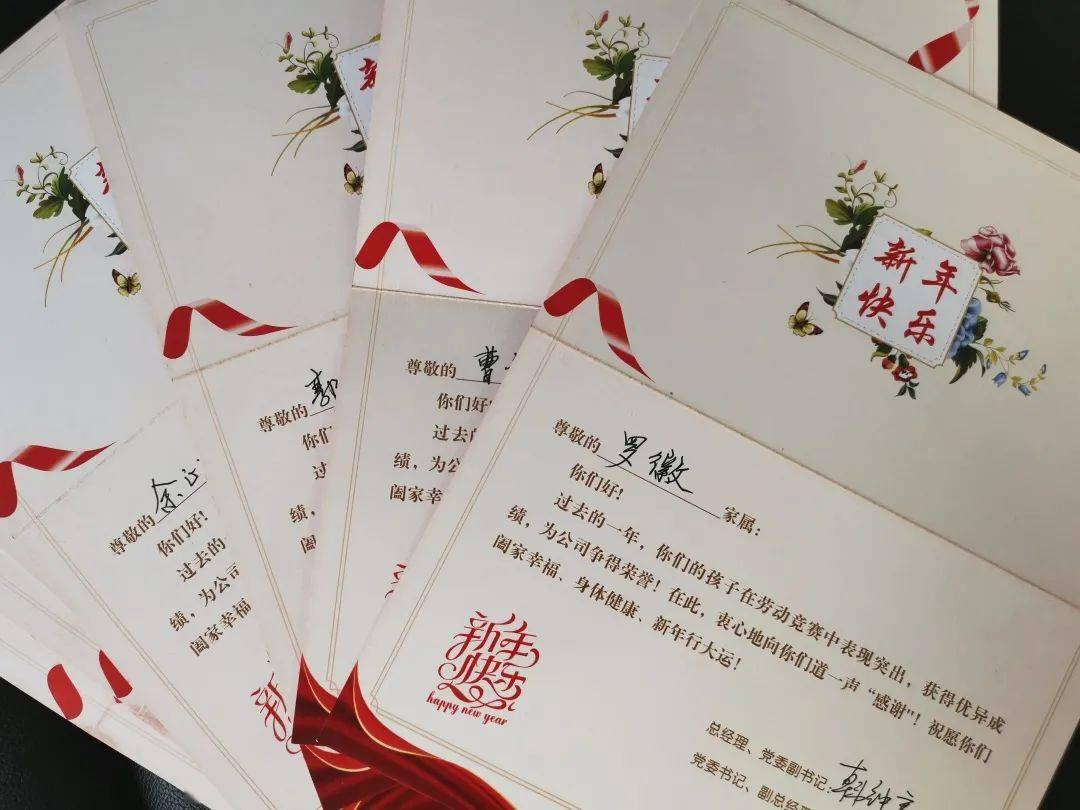 新年
快乐
尊敬的 余
你们好!
过去的
绩，为公司
阖家幸福
尊敬的 郭
你们
过
绩，
阖
尊敬的 曹
你们好!
过去的
绩，为公
阖家幸
尊敬的 罗徽 家属：
你们好!
过去的一年，你们的孩子在劳动竞赛中表现突出，获得优异成
绩，为公司争得荣誉! 在此，衷心地向你们道一声“感谢”! 祝愿你们
阖家幸福、身体健康、新年行大运!
新年
快乐
happy new year
总经理、党委副书记:
党委书记、副总经理